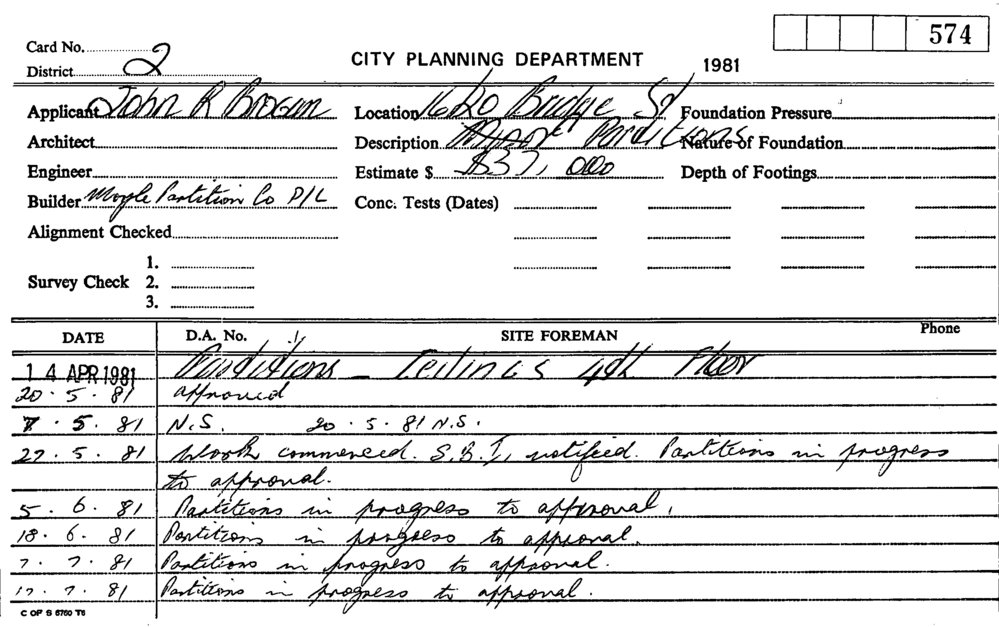 574
Card No. 2
CITY PLANNING DEPARTMENT 1981
District
Applicant John R Brogan Location 16/20 Bridge St Foundation Pressure
Architect Description Minor Partitions Nature of Foundation
Engineer Estimate $ $37,000 Depth of Footings
Builder Moyle Partition Co P/L Conc. Tests (Dates)
Alignment Checked
1.
Survey Check 2.
3.
DATE D.A. No. SITE FOREMAN Phone
14 APR 1981 Partitions - Ceilings 4th Floor
20.5.81 approved
7.5.81 N.S. 20.5.81 N.S.
27.5.81 Work commenced. S.B.I. notified. Partitions in progress
to approval.
5.6.81 Partitions in progress to approval.
18.6.81 Partitions in progress to approval.
7.7.81 Partitions in progress to approval.
17.7.81 Partitions in progress to approval.
C OF S 5760 T6